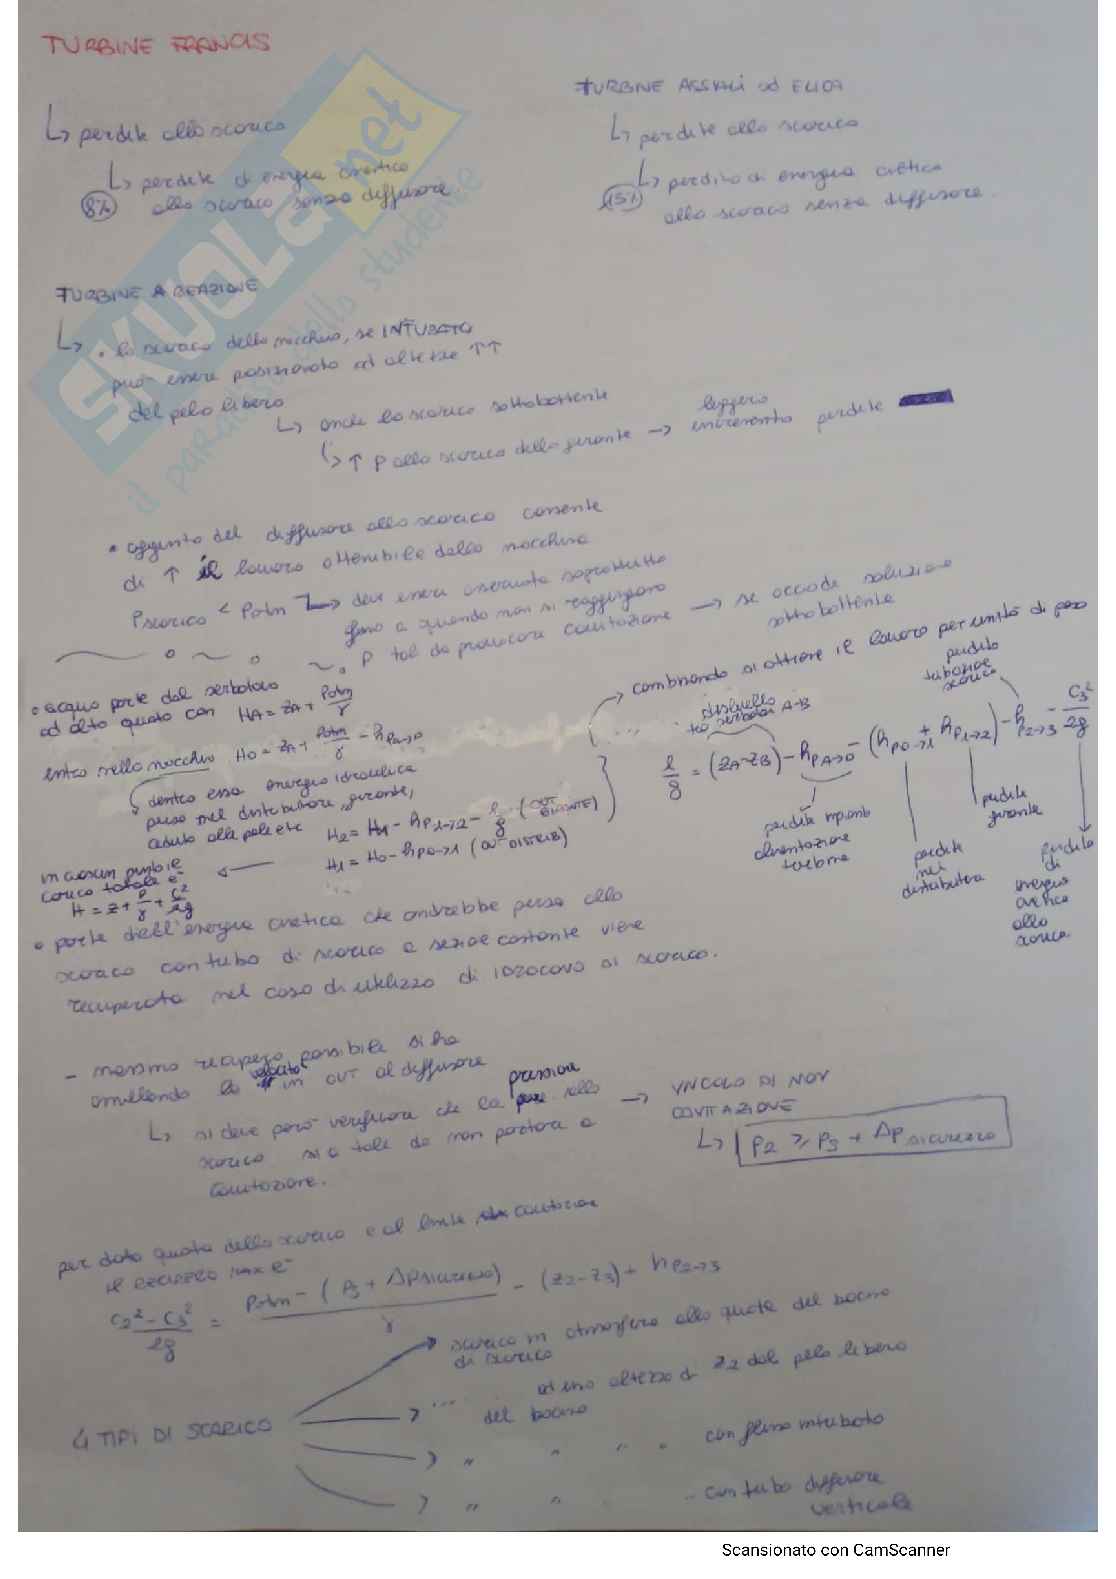 TURBINE FRANCIS
↳ perdite allo scarico
↳ perdite di energia cinetica
8% allo scarico senza diffusore.
TURBINE ASSIALI ad ELICA
↳ perdite allo scarico
↳ perdita di energia cinetica
15% allo scarico senza diffusore.
TURBINE A REAZIONE
↳ • lo scarico della macchina, se INTUBATO
può essere posizionato ad altezze ↑↑
del pelo libero
↳ anche lo scarico sottobattente
↳ ↑ p allo scarico della girante → leggero incremento perdite
• aggiunta del diffusore allo scarico consente
di ↑ il lavoro ottenibile dalla macchina
Pscarico < Patm → deve essere osservata soprattutto
fino a quando non si raggiungono
p tal da provocare cavitazione → se accade soluzione
sottobattente
• acqua parte dal serbatoio
ad alta quota con HA = zA + Patm/γ
entra nella macchina H0 = zA + Patm/γ - hpA→0
dentro essa energia idraulica
persa nel distributore, girante,
ceduta alle pale etc
H2 = H1 - hp1→2 - l/g (OUT GIRANTE)
H1 = H0 - hp0→1 (OUT DISTRIB)
in ciascun punto il
carico totale è
H = z + p/γ + c²/2g
→ combinando si ottiene il lavoro per unità di peso
dislivello tra serbatoi A-B
perdite tubazione scarico
l/g = (zA-zB) - hpA→0 - (hp0→1 + hp1→2) - hp2→3 - c3²/2g
perdite impianto
alimentazione
turbina
perdite
nel
distributore
perdite
girante
perdita
di
energia
cinetica
allo
scarico
• parte dell'energia cinetica che andrebbe persa allo
scarico con tubo di scarico a sezione costante viene
recuperata nel caso di utilizzo di idrocono di scarico.
- massimo recupero possibile si ha
annullando la velocità in OUT al diffusore
↳ si deve però verificare che la pressione allo
scarico sia tale da non portare a
cavitazione.
→ VINCOLO DI NON
CAVITAZIONE
↳ p2 ≥ ps + Δp sicurezza
per data quota dello scarico e al limite cavitazione
il RECUPERO MAX è
c2² - c3²/2g = Patm - (ps + Δpsicurezza)/γ - (z2-z3) + hp2→3
4 TIPI DI SCARICO
→ scarico in atmosfera alla quota del bacino
di scarico
→ ... ad una altezza di z2 dal pelo libero
del bacino
→ " " " " con flusso intubato
→ " " .. con tubo diffusore
verticale
SKUOLA.net
il paradiso dello studente
Scansionato con CamScanner